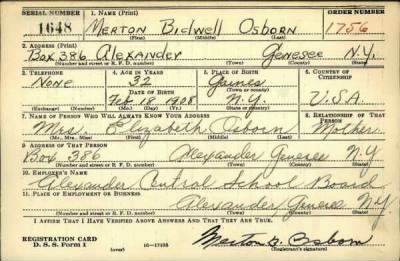 SERIAL NUMBER 1. NAME (Print) ORDER NUMBER
1648 MERTON BIDWELL OSBORN 1756
(First) (Middle) (Last)
2. ADDRESS (Print)
Box 386 Alexander Genesee N.Y.
(Number and street or R. F. D. number) (Town) (County) (State)
3. TELEPHONE 4. AGE IN YEARS 5. PLACE OF BIRTH 6. COUNTRY OF CITIZENSHIP
None 32 Gaines
DATE OF BIRTH (Town or county)
Feb 18 1908 N.Y. U.S.A.
(Exchange) (Number) (Mo.) (Day) (Yr.) (State or country)
7. NAME OF PERSON WHO WILL ALWAYS KNOW YOUR ADDRESS 8. RELATIONSHIP OF THAT PERSON
Mrs Elizabeth Osborn Mother
(Mr., Mrs., Miss) (First) (Middle) (Last)
9. ADDRESS OF THAT PERSON
Box 386 Alexander Genesee N.Y.
(Number and street or R. F. D. number) (Town) (County) (State)
10. EMPLOYER'S NAME
Alexander Central School Board
11. PLACE OF EMPLOYMENT OR BUSINESS
Alexander Genesee N.Y.
(Number and street or R. F. D. number) (Town) (County) (State)
I AFFIRM THAT I HAVE VERIFIED ABOVE ANSWERS AND THAT THEY ARE TRUE.
REGISTRATION CARD
D. S. S. Form 1 (over) 16—17105 Merton B. Osborn
(Registrant's signature)